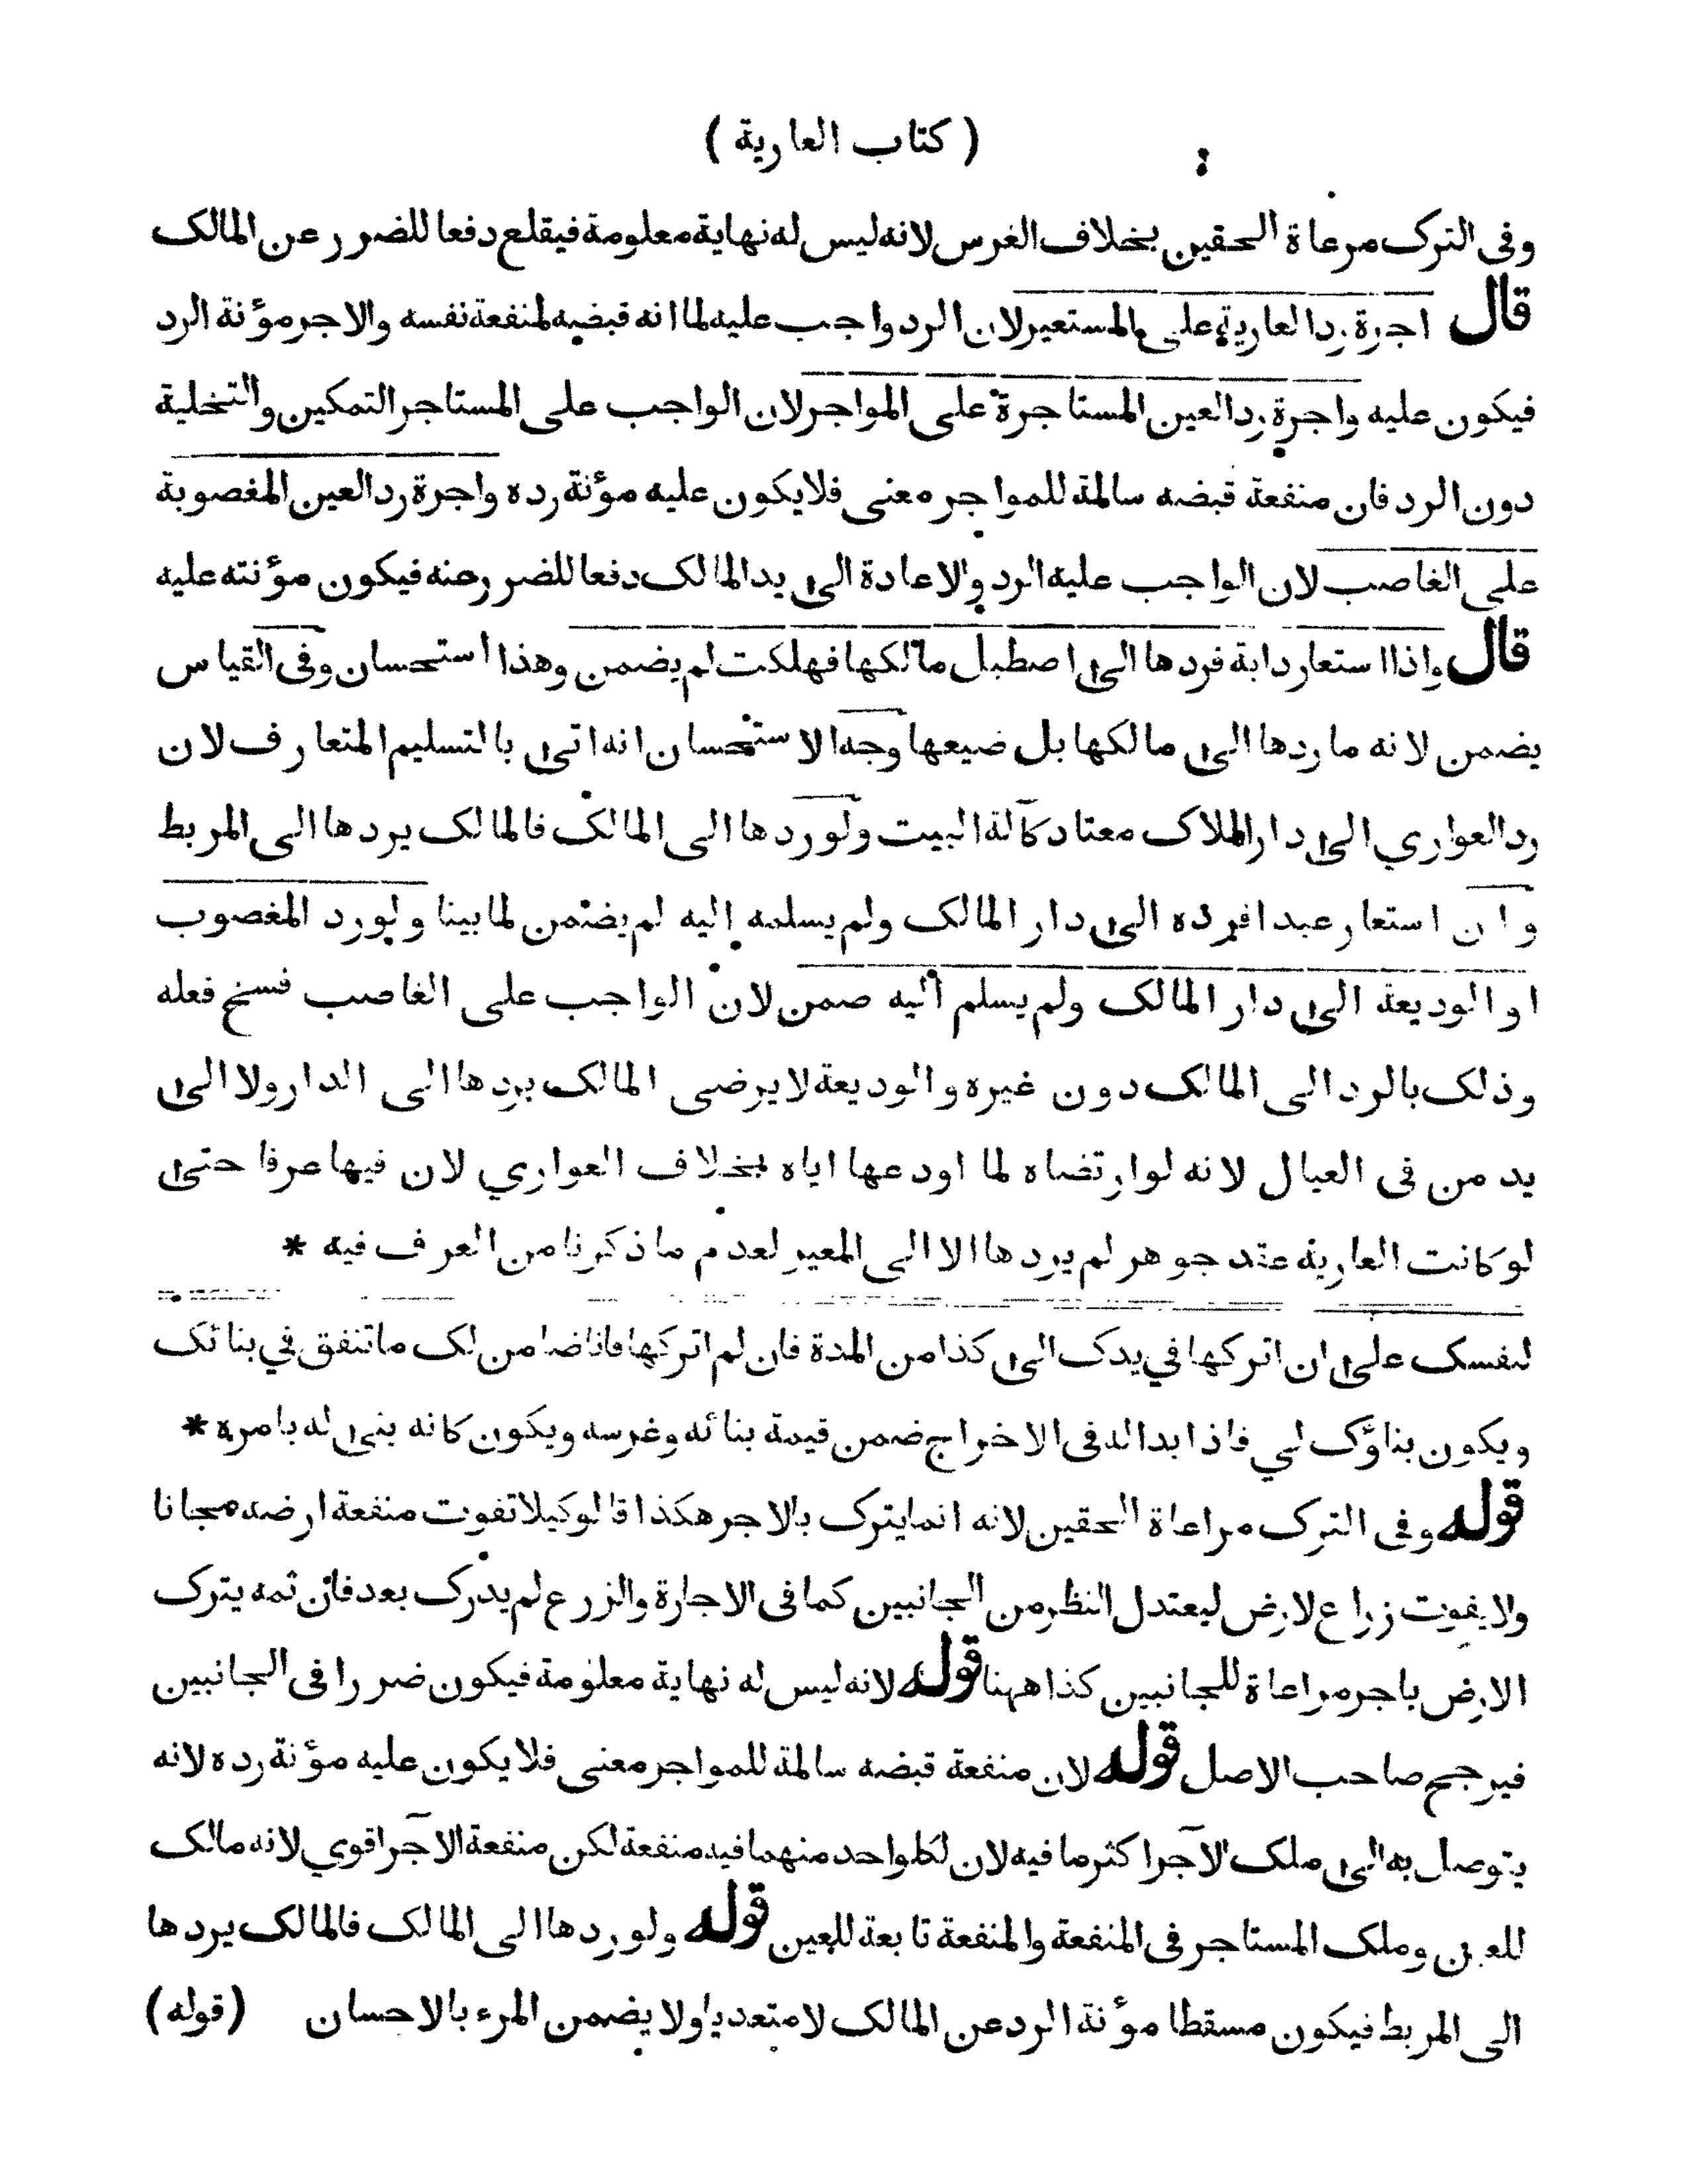 ( كتاب العارية )
وفى الترك مرعاة الحقين بخلاف الغرس لانه ليس له نهاية معلومة فيقلع دفعا للضرر عن المالك
قال اجرة رد العارية على المستعير لان الرد واجب عليه لما انه قبضه لمنفعة نفسه والاجر مؤنة الرد
فيكون عليه واجرة رد العين المستاجرة على المواجر لان الواجب على المستاجر التمكين والتخلية
دون الرد فان منفعة قبضه سالمة للمواجر معنى فلا يكون عليه مؤنة رده واجرة رد العين المغصوبة
على الغاصب لان الواجب عليه الرد والاعادة الى يد المالك دفعا للضرر عنه فيكون مؤنته عليه
قال واذا استعار دابة فردها الى اصطبل مالكها فهلكت لم يضمن وهذا استحسان وفى القياس
يضمن لانه ماردها الى مالكها بل ضيعها وجه الاستحسان انه اتى بالتسليم المتعارف لان
رد العواري الى دار الملاك معتاد كآلة البيت ولو ردها الى المالك فالمالك يردها الى المربط
وان استعار عبدا فرده الى دار المالك ولم يسلمه اليه لم يضمن لما بينا ولورد المغصوب
او الوديعة الى دار المالك ولم يسلم اليه ضمن لان الواجب على الغاصب فسخ فعله
وذلك بالرد الى المالك دون غيره والوديعة لا يرضى المالك بردها الى الدار ولا الى
يد من فى العيال لانه لو ارتضاه لما اودعها اياه بخلاف العواري لان فيها عرفا حتى
لو كانت العارية عقد جوهر لم يردها الا الى المعير لعدم ما ذكرنا من العرف فيه *
لنفسك على ان اتركها في يدك الى كذا من المدة فان لم اتركها فانا ضامن لك ما تنفق في بنائك
ويكون بناؤك لي فاذا بدا له فى الاخراج ضمن قيمة بنائه وغرسه ويكون كانه بنى له بامره *
قوله وفى الترك مراعاة الحقين لانه انما يترك بالاجر هكذا قالوكيلا تفوت منفعة ارضه مجانا
ولا يفوت زراع لارض ليعتدل النظر من الجانبين كما فى الاجارة والزرع لم يدرك بعد فان ثمه يترك
الارض باجر مراعاة للجانبين كذا ههنا قوله لانه ليس له نهاية معلومة فيكون ضررا فى الجانبين
فيرجح صاحب الاصل قوله لان منفعة قبضه سالمة للمواجر معنى فلا يكون عليه مؤنة رده لانه
يتوصل به الى ملك الآجر اكثر ما فيه لان لكلواحد منهما فيه منفعة لكن منفعة الآجر اقوي لانه مالك
للعين وملك المستاجر فى المنفعة والمنفعة تابعة للعين قوله ولو ردها الى المالك فالمالك يردها
الى المربط فيكون مسقطا مؤنة الرد عن المالك لا متعديا ولا يضمن المرء بالاحسان (قوله)